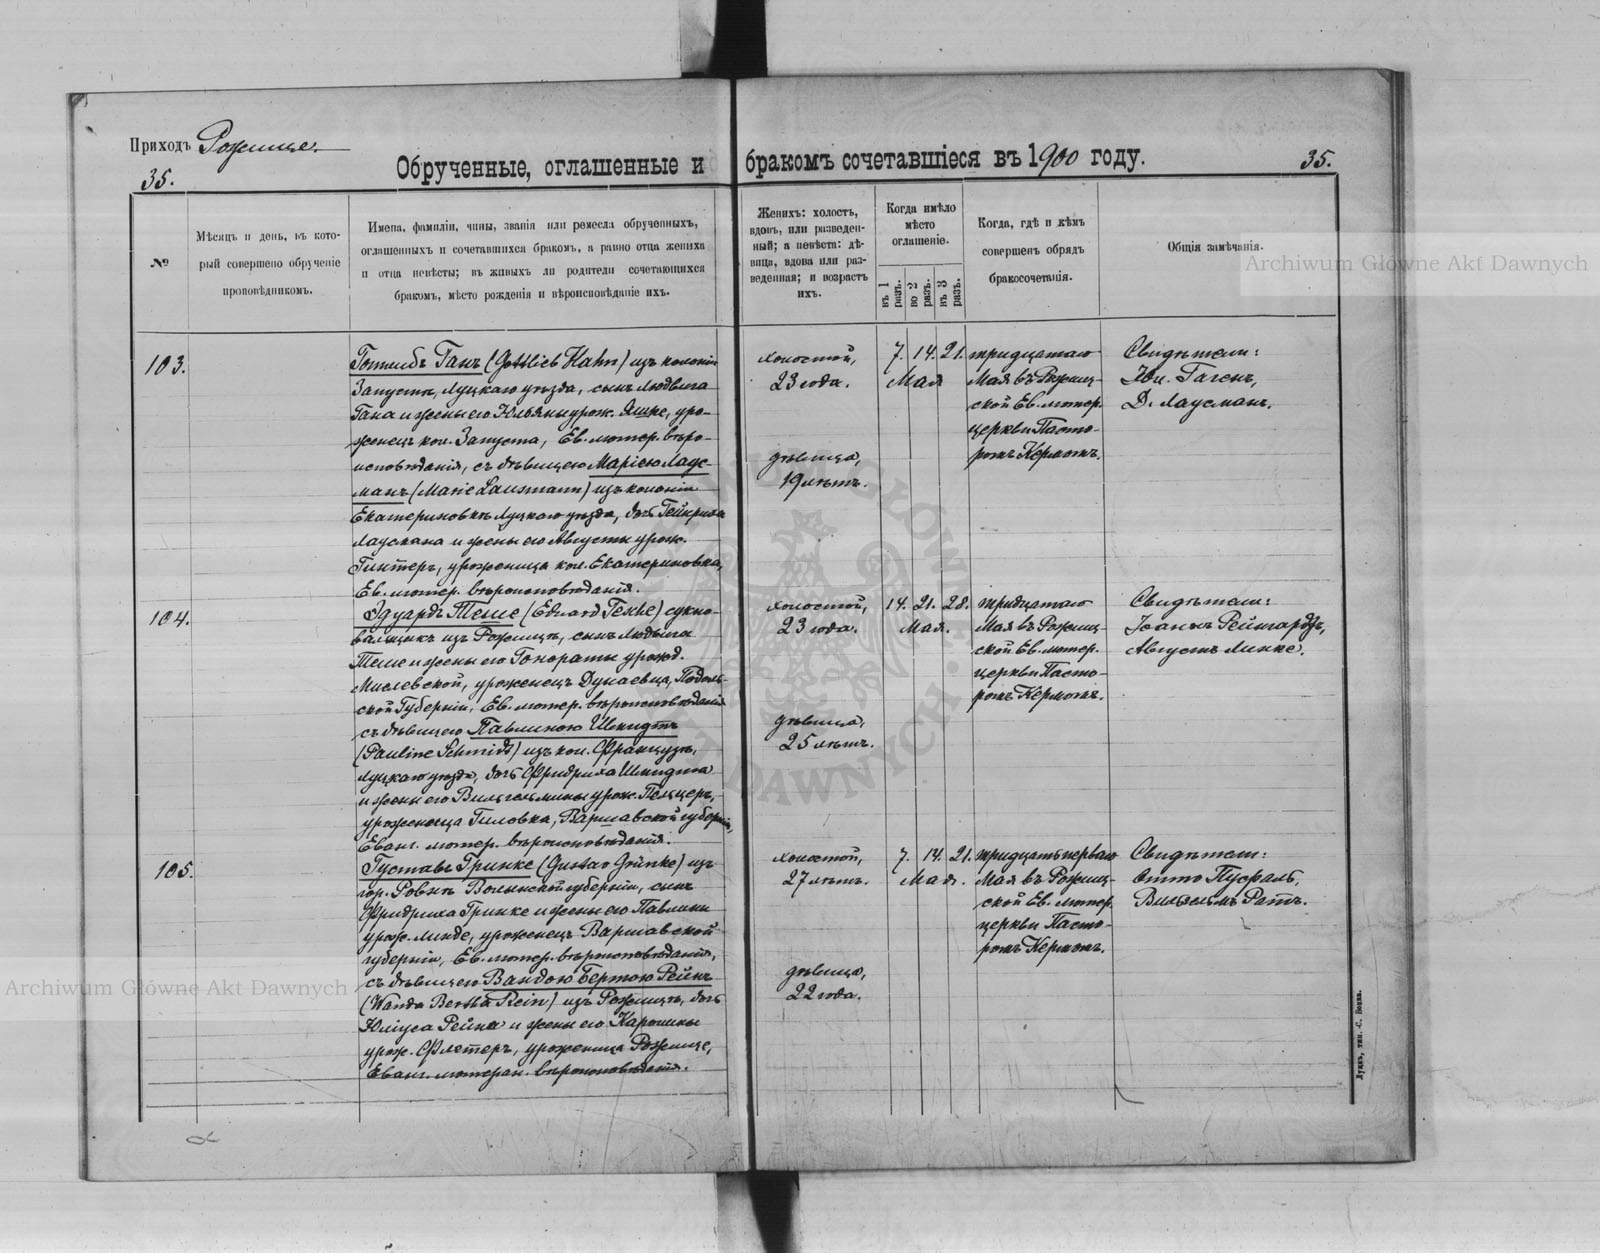 Приходъ Рожище.
35.
Обрученные, оглашенные и бракомъ сочетавшіеся въ 1900 году.
35.
№
Мѣсяцъ и день, въ кото-
рый совершено обрученіе
проповѣдникомъ.
Имена, фамиліи, чины, званія или ремесла обрученныхъ,
оглашенныхъ и сочетавшихся бракомъ, а равно отца жениха
и отца невѣсты; въ живыхъ ли родители сочетающихся
бракомъ, мѣсто рожденія и вѣроисповѣданіе ихъ.
Женихъ: холостъ,
вдовъ, или разведен-
ный; а невѣста: дѣ-
вица, вдова или раз-
веденная; и возрастъ
ихъ.
Когда имѣло
мѣсто
оглашеніе.
въ 1 разъ.
во 2 разъ.
въ 3 разъ.
Когда, гдѣ и кѣмъ
совершенъ обрядъ
бракосочетанія.
Общія замѣчанія.
103.
Готлибъ Ганъ (Gottlieb Hahn) изъ колоніи
Запустъ, Луцкаго уѣзда, сынъ Людвига
Гана и жены его Юльяны урож. Яшке, уро-
женецъ кол. Запуста, Ев. лютер. вѣро-
исповѣданія, съ дѣвицею Маріею Лаус-
манъ (Marie Lausmann) изъ колоніи
Екатериновкъ Луцкаго уѣзда, дочь Гейнриха
Лаусмана и жены его Августы урож.
Гинтеръ, уроженица кол. Екатериновка,
Ев. лютер. вѣроисповѣданія.
холостой,
23 года.
дѣвица,
19 лѣтъ.
7. 14. 21.
Мая
тридцатаго
Мая въ Рожищ-
ской Ев. лютер.
церкви Пасто-
ромъ Кермомъ.
Свидѣтели:
Юл. Гагенъ,
Д. Лаусманъ.
104.
Эдуардъ Теше (Eduard Teshe) сукно-
вальщикъ изъ Рожищъ, сынъ Людвига
Теше и жены его Гонораты урожд.
Мислевской, уроженецъ Дунаевца, Подоль-
ской Губерніи, Ев. лютер. вѣроисповѣданія
съ дѣвицею Павлиною Шмидтъ
(Pauline Schmidt) изъ кол. Французъ,
Луцкаго уѣзда, дочь Фридриха Шмидта
и жены его Вильгельмины урож. Пельцеръ,
уроженица Гиловка, Варшавской губерніи,
Еванг. лютер. вѣроисповѣданія.
холостой,
23 года.
дѣвица,
25 лѣтъ.
14. 21. 28.
Мая.
тридцатаго
Мая въ Рожищ-
ской Ев. лютер.
церкви Пасто-
ромъ Кермомъ.
Свидѣтели:
Іоганъ Рейнгардъ,
Августъ Линке.
105.
Густавъ Гринке (Gustav Grünke) изъ
гор. Ровнъ Волынской губерніи, сынъ
Фридриха Гринке и жены его Павлины
урож. Линде, уроженецъ Варшавской
губерніи, Ев. лютер. вѣроисповѣданія,
съ дѣвицею Вандою Бертою Рейнъ
(Wanda Bertha Rein) изъ Рожищъ, дочь
Юліуса Рейна и жены его Каролины
урож. Флетеръ, уроженица Рожище,
Еванг. лютеран. вѣроисповѣданія.
холостой,
27 лѣтъ.
дѣвица,
22 года.
7. 14. 21.
Мая.
тридцать перваго
Мая въ Рожищ-
ской Ев. лютер.
церкви Пасто-
ромъ Кермомъ.
Свидѣтели:
Отто Пуфаль,
Вильгельмъ Ратъ.
Луцкъ, тип. С. Бонкъ.
Archiwum Główne Akt Dawnych
Archiwum Główne Akt Dawnych